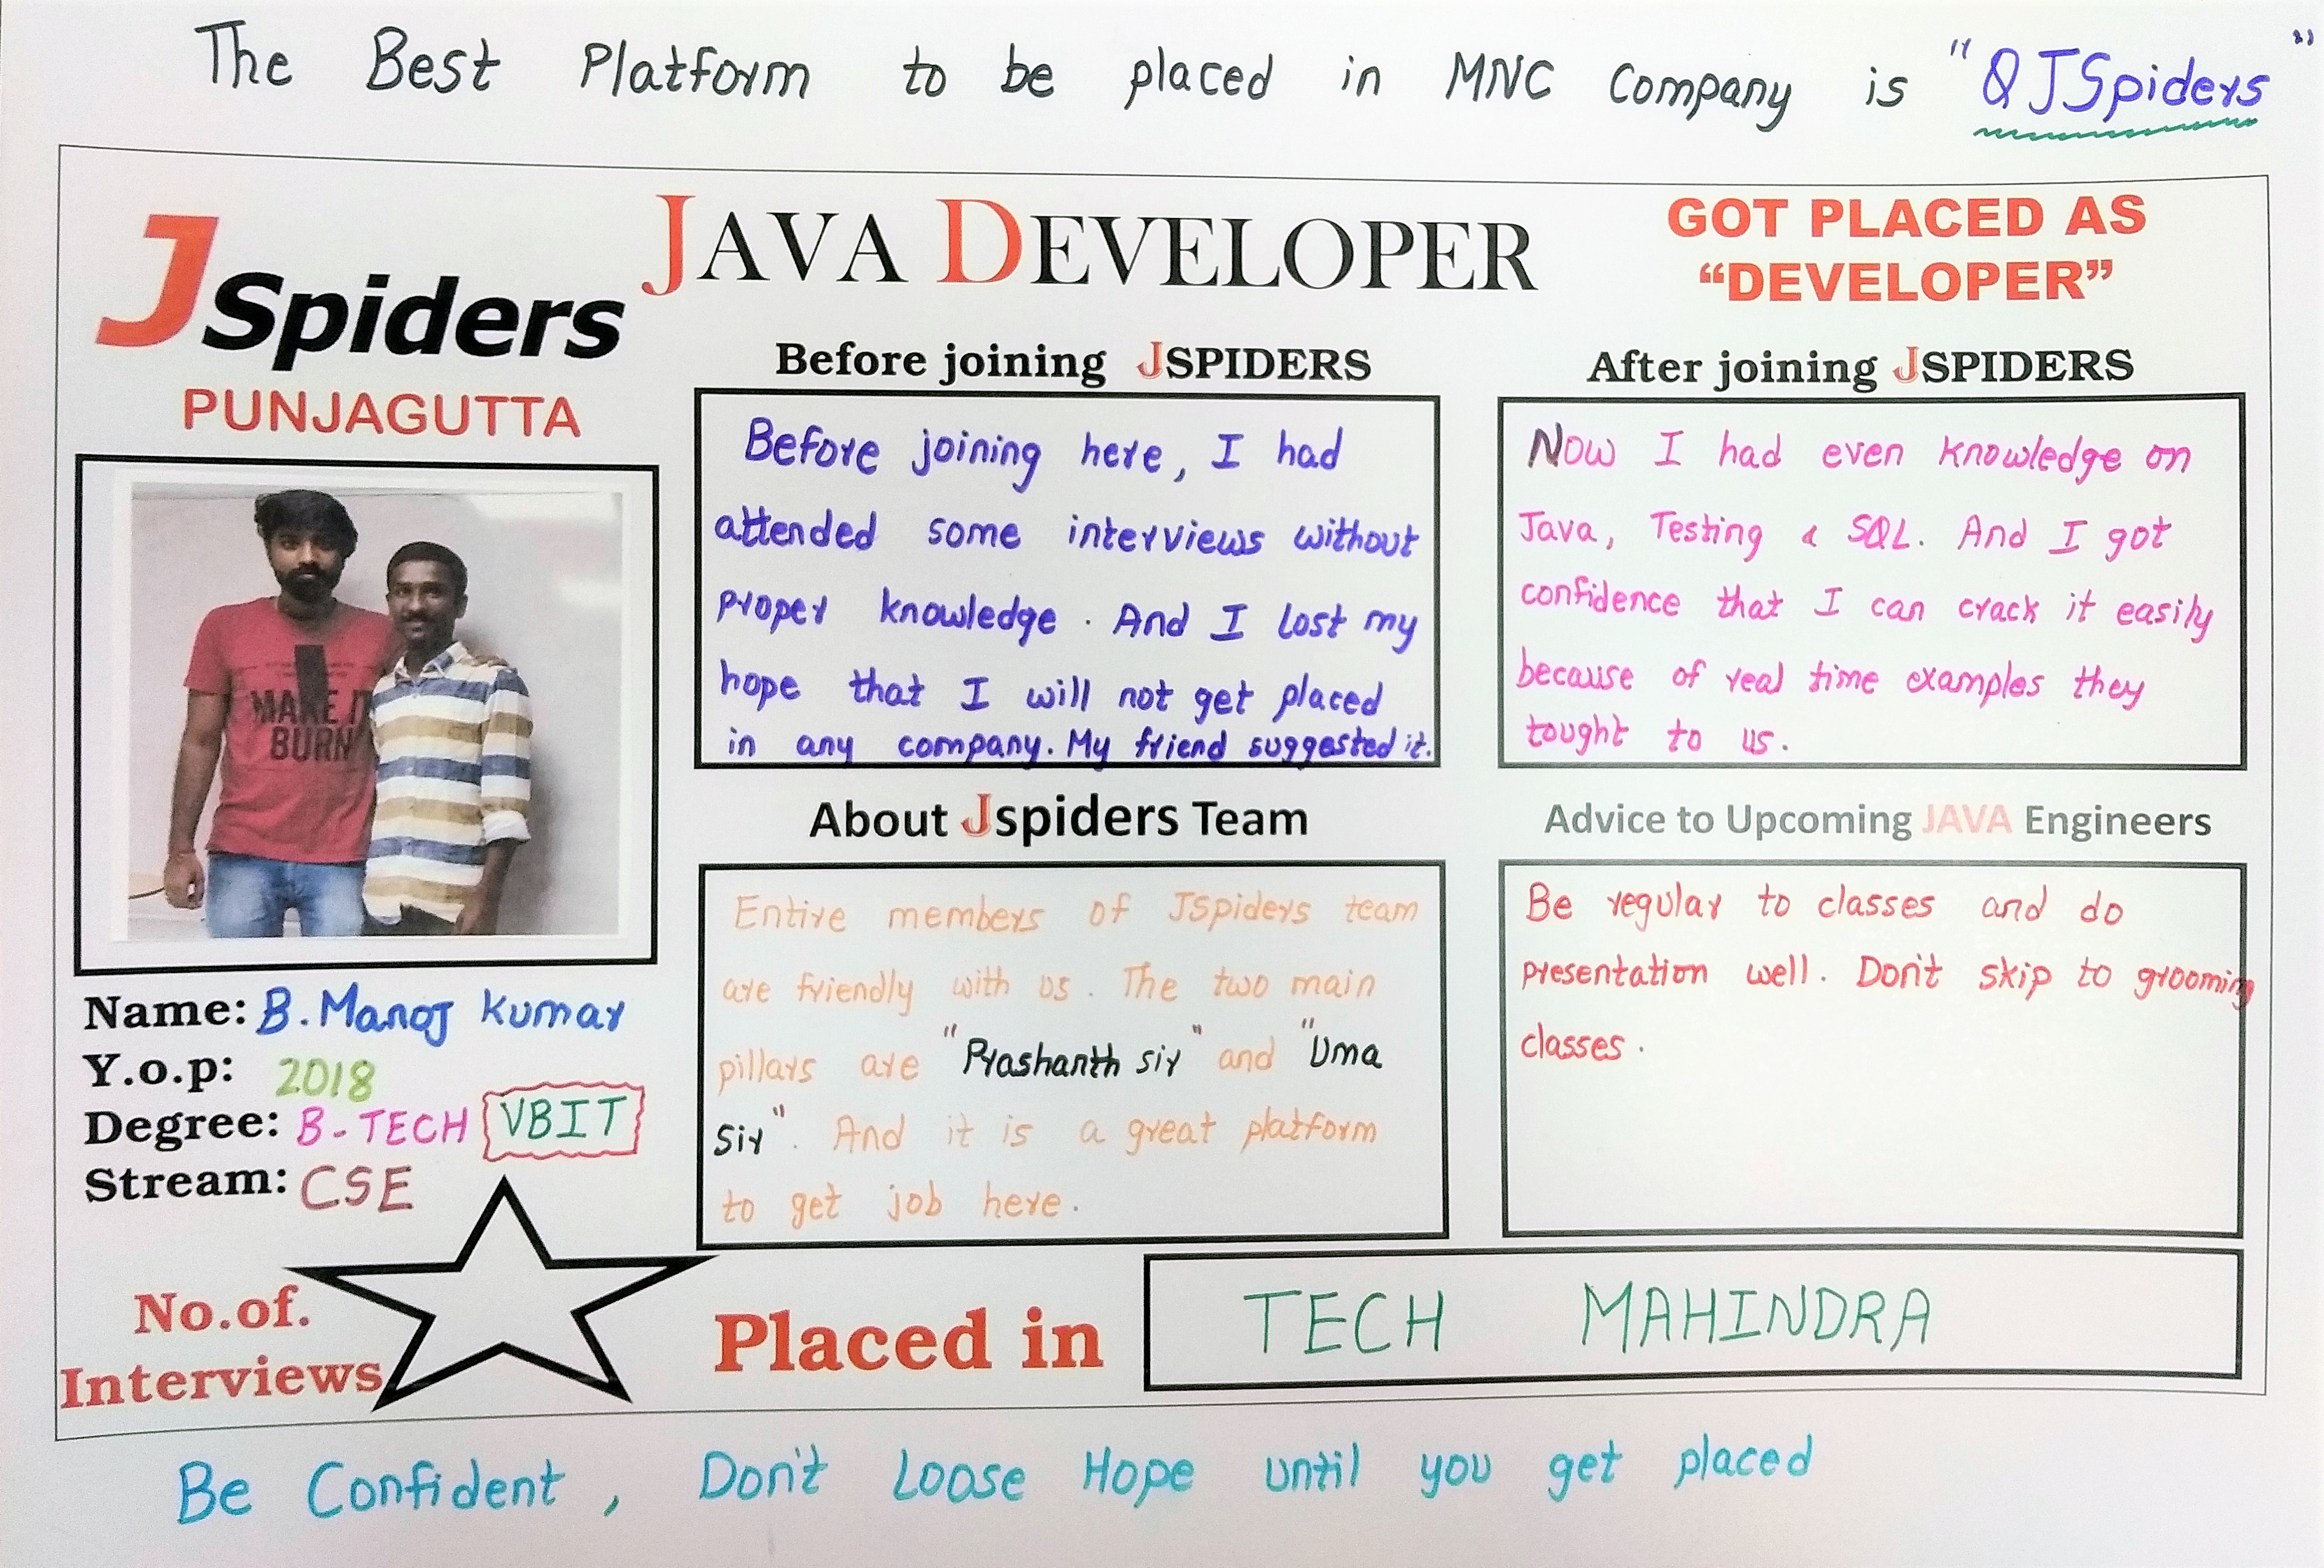 The Best Platform to be placed in MNC Company is "QJSpiders"
JSpiders
PUNJAGUTTA
JAVA DEVELOPER
GOT PLACED AS
“DEVELOPER”
Before joining JSPIDERS
Before joining here, I had
attended some interviews without
proper knowledge. And I lost my
hope that I will not get placed
in any company. My friend suggested it.
After joining JSPIDERS
Now I had even knowledge on
Java, Testing & SQL. And I got
confidence that I can crack it easily
because of real time examples they
tought to us.
MAKE IT
BURN
Name: B. Manoj Kumar
Y.o.p: 2018
Degree: B-TECH VBIT
Stream: CSE
About Jspiders Team
Entire members of JSpiders team
are friendly with us. The two main
pillars are "Prashanth sir" and "Uma
Sir". And it is a great platform
to get job here.
Advice to Upcoming JAVA Engineers
Be regular to classes and do
presentation well. Don't skip to grooming
classes.
No.of.
Interviews
Placed in TECH MAHINDRA
Be Confident, Don't Loose Hope until you get placed